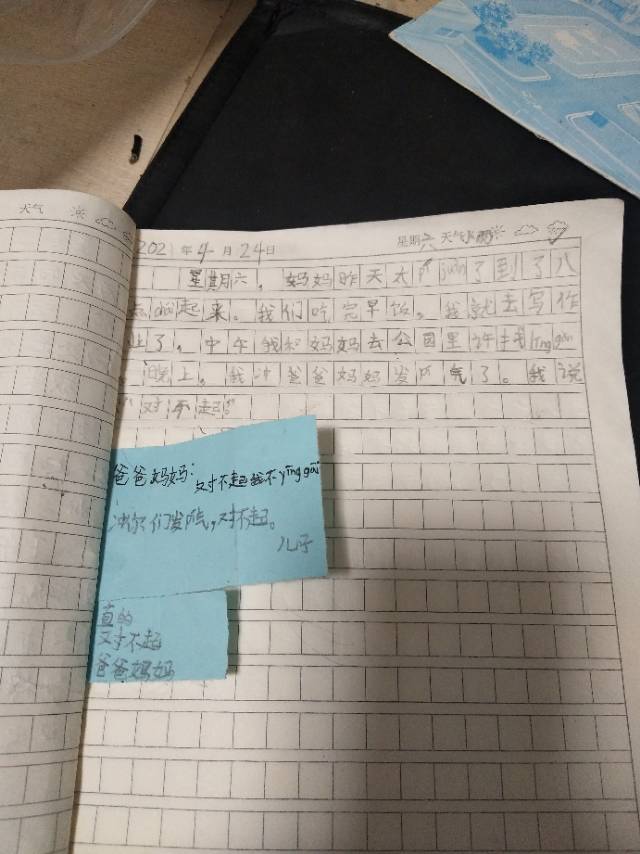 天气
2021年4月24日 星期六 天气
星期六,妈妈昨天太 juàn了到了八
起来。我们吃完早饭。我就去写作
业了,中午我和妈妈去公园里
晚上。我冲爸爸妈妈发pí气了。我说
“对不起”
爸爸妈妈:对不起我不yīng gāi
冲你们发pí气,对不起。
儿子
真的
对不起
爸爸妈妈